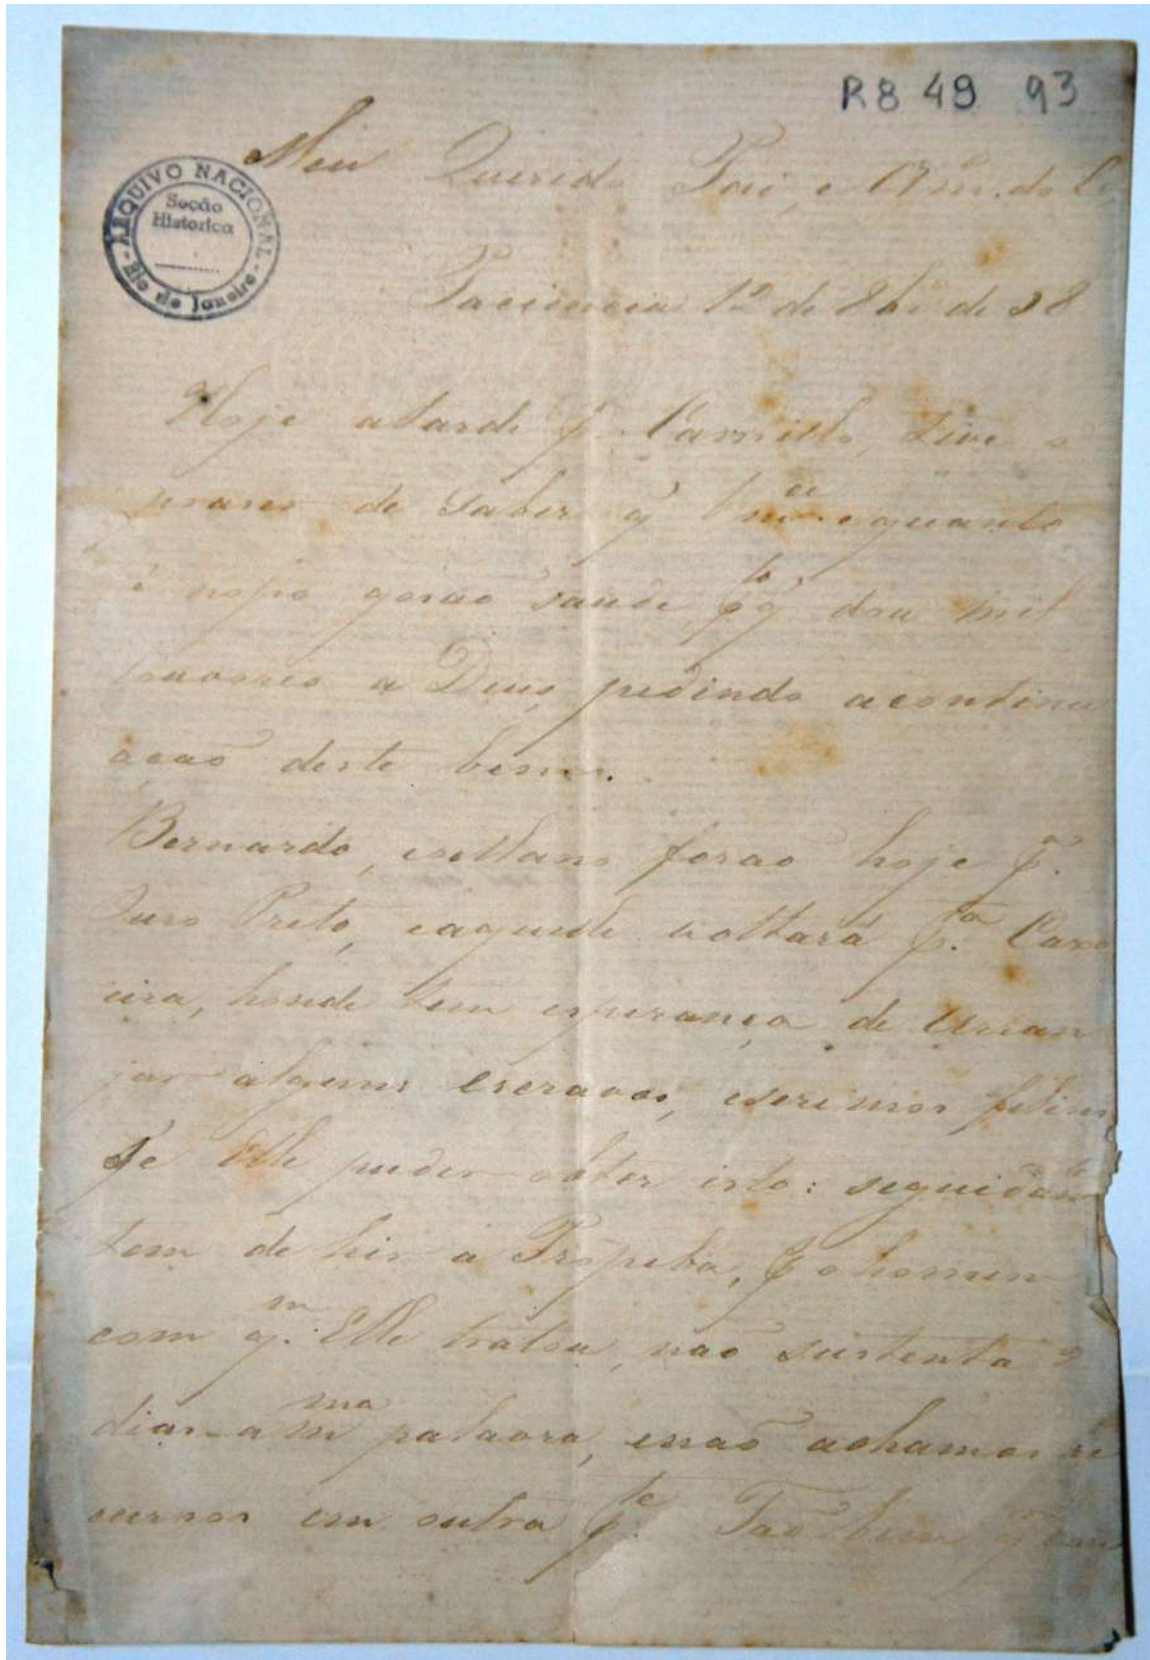 R8 49 93
ARQUIVO NACIONAL
Secão
Historica
Rio de Janeiro
Meu Querido Pai, e Am.º do C.
Paciencia 1º de 8br.º de
Hoje atarde p.r Camillo, tive o
praser de saber q̃ e quanto
é nosso gosão saude, p.lo q̃ dou mil
louvores a Deus, pedindo acontinu
acaõ deste bem.
Bernardo, forão hoje p.ª
Ouro Preto, eaquelle voltará p.ª
eira, honde tem esperança de arran
jar alguns escravos, seremos felises
se Elle puder obter isto:
tem de hir a
com q.m Elle tratou, naõ sustenta 2
dias a m.ma palavra, enaõ achamos re
cursos em outra p.te Taõ bem q̃